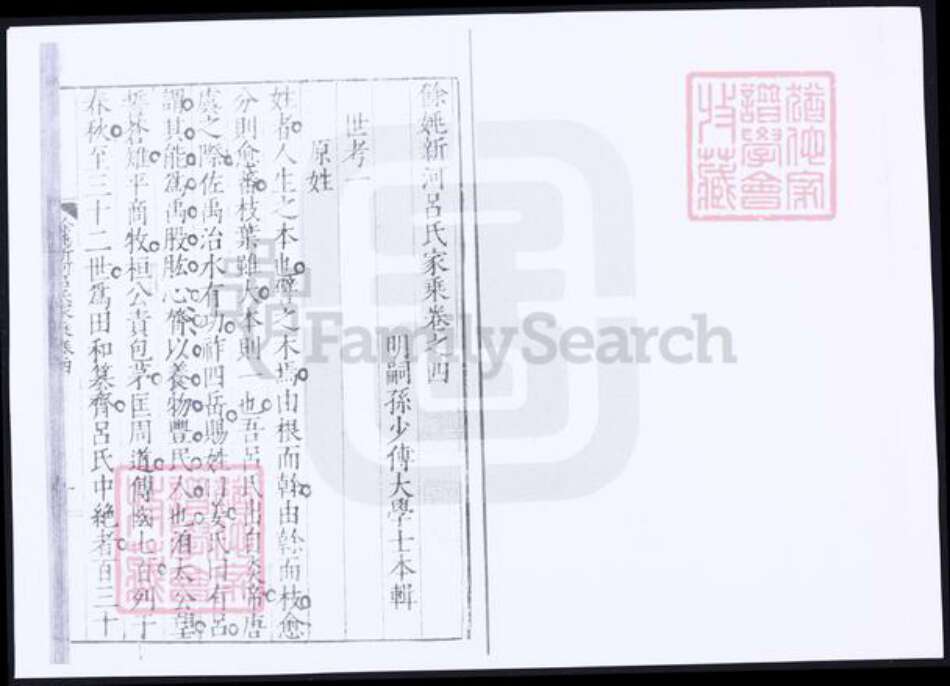 餘姚新河呂氏家乘卷之四
明嗣孫少傅大學士本輯
世考一
原姓
姓者人生之本也譬之木焉由根而幹由幹而枝愈
分則愈蕃枝葉雖大本則一也吾呂氏出自炎帝唐
虞之際佐禹治水有功祚四岳賜姓曰姜氏曰有呂
謂其能為禹股肱心膂以養物豐民人也洎太公望
平商牧桓公責包茅匡周道傳國七百列于
春秋至三十二世為田和篡齊呂氏中絶者百三十
猶他家
譜學會
收藏
FamilySearch